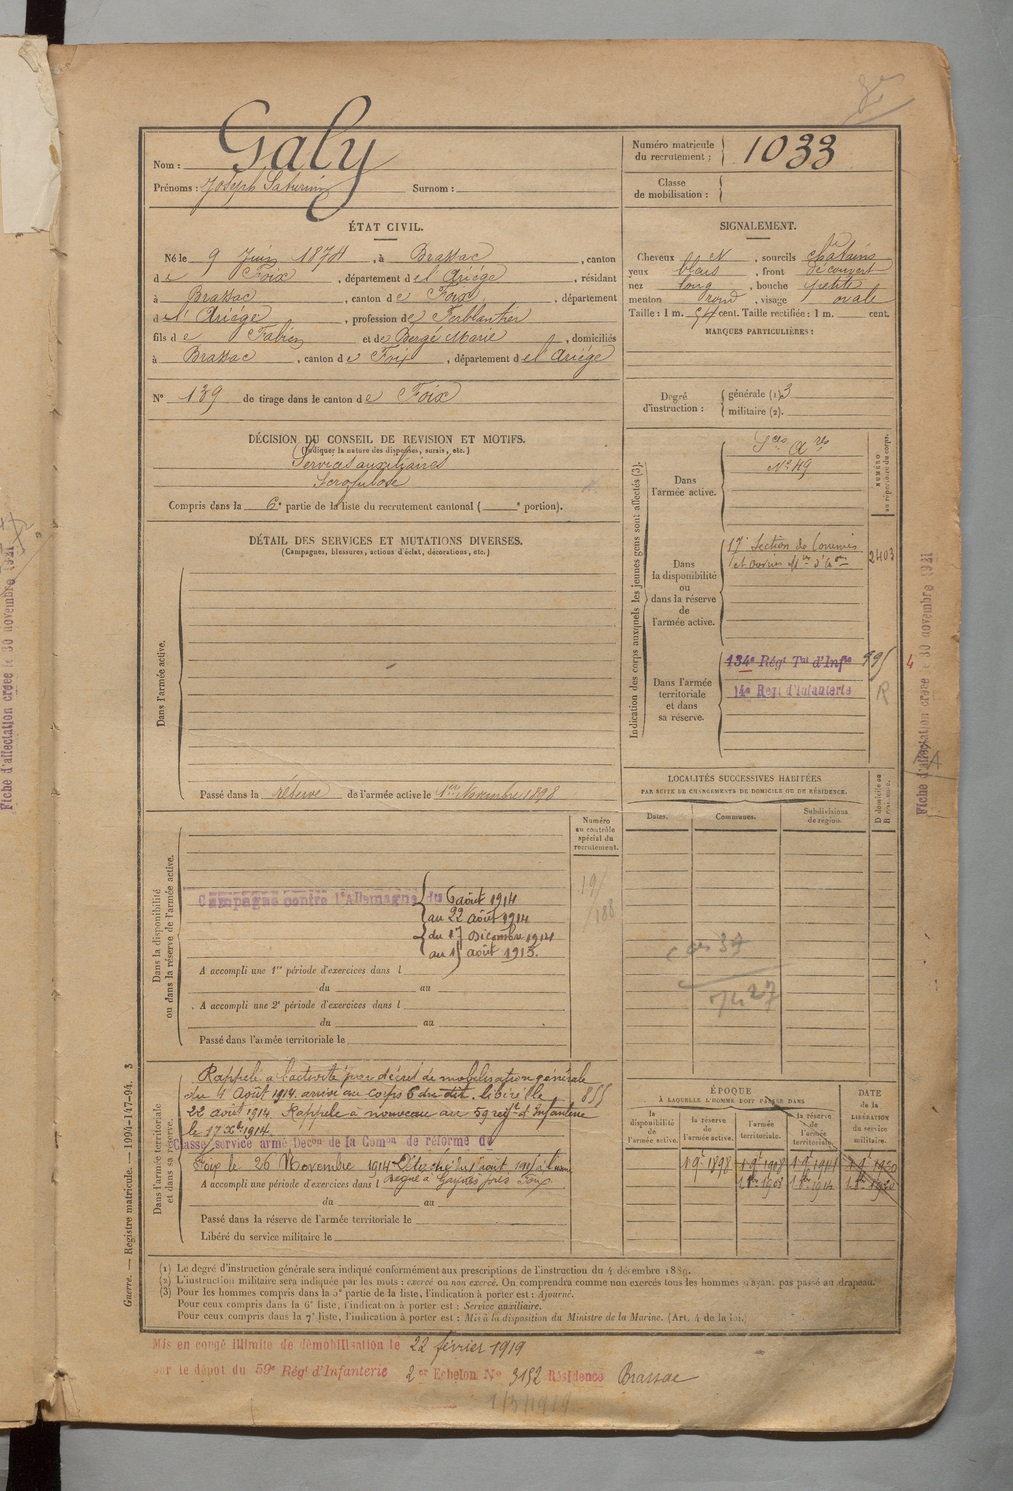 Nom : Galy
Prénoms : Joseph Saturnin Surnom :
Numéro matricule du recrutement : 1033
Classe de mobilisation :
ÉTAT CIVIL.
Né le 9 Juin 1874, à Brassac, canton
de Foix, département de l'Ariège, résidant
à Brassac, canton de Foix, département
de l'Ariège, profession de Ferblantier
fils de Fabien et de Bergé Marie, domiciliés
à Brassac, canton de Foix, département de l'Ariège
N° 139 de tirage dans le canton de Foix
SIGNALEMENT.
Cheveux N, sourcils châtains
yeux bleus, front découvert
nez long, bouche petite
menton rond, visage ovale
Taille : 1 m. 54 cent. Taille rectifiée : 1 m. cent.
MARQUES PARTICULIÈRES :
Degré d'instruction : générale (1). 3
militaire (2).
DÉCISION DU CONSEIL DE REVISION ET MOTIFS.
(Indiquer la nature des dispenses, sursis, etc.)
Services auxiliaires
Scrofulose
Compris dans la 6e partie de la liste du recrutement cantonal ( e portion).
DÉTAIL DES SERVICES ET MUTATIONS DIVERSES.
(Campagnes, blessures, actions d'éclat, décorations, etc.)
Dans l'armée active.
Passé dans la réserve de l'armée active le 1er Novembre 1898
Indication des corps auxquels les jeunes gens sont affectés (3).
NUMÉRO au répertoire du corps.
Dans l'armée active.
N° 49
Dans la disponibilité ou dans la réserve de l'armée active.
17e Section de Commis
et ouvriers
2403
Dans l'armée territoriale et dans sa réserve.
134e Régt Tal d'Infie
14e Régt d'Infanterie
R
LOCALITÉS SUCCESSIVES HABITÉES
PAR SUITE DE CHANGEMENTS DE DOMICILE OU DE RÉSIDENCE.
Dates.
Communes.
Subdivisions de région.
D domicile ou R résidence.
Numéro au contrôle spécial du recrutement.
19/188
Dans la disponibilité ou dans la réserve de l'armée active.
Campagne contre l'Allemagne du 6 août 1914
au 22 août 1914
du 17 Décembre 1914
au 1 août 1915.
A accompli une 1re période d'exercices dans l
du au
A accompli une 2e période d'exercices dans l
du au
Passé dans l'armée territoriale le
Dans l'armée territoriale et dans sa réserve.
Rappelé à l'activité par décret de mobilisation générale
du 4 Août 1914. arrivé au corps 6 du dit. libéré le
22 août 1914. Rappelé à nouveau au 59 regt d'Infanterie
le 17 Xbre 1914.
Classé service armé Décon de la Comon de réforme de
Foix le 26 Novembre 1914
A accompli une période d'exercices dans l
du au
Passé dans la réserve de l'armée territoriale le
Libéré du service militaire le
ÉPOQUE
À LAQUELLE L'HOMME DOIT PASSER DANS
la disponibilité de l'armée active.
la réserve de l'armée active.
l'armée territoriale.
la réserve de l'armée territoriale.
DATE de la LIBÉRATION du service militaire.
(1) Le degré d'instruction générale sera indiqué conformément aux prescriptions de l'instruction du 4 décembre 1889.
(2) L'instruction militaire sera indiquée par les mots : exercé ou non exercé. On comprendra comme non exercés tous les hommes n'ayant pas passé au drapeau.
(3) Pour les hommes compris dans la 5e partie de la liste, l'indication à porter est : Ajourné.
Pour ceux compris dans la 6e liste, l'indication à porter est : Service auxiliaire.
Pour ceux compris dans la 7e liste, l'indication à porter est : Mis à la disposition du Ministre de la Marine. (Art. 4 de la loi.)
Mis en congé illimité de démobilisation le 22 février 1919
par le dépôt du 59e Régt d'Infanterie 2e Echelon No 3152 Résidence Brassac
Guerre. — Registre matricule. — 1994-147-94. 3
Fiche d'affectation créée le 30 novembre 1921
Fiche d'affectation créée le 30 novembre 1921